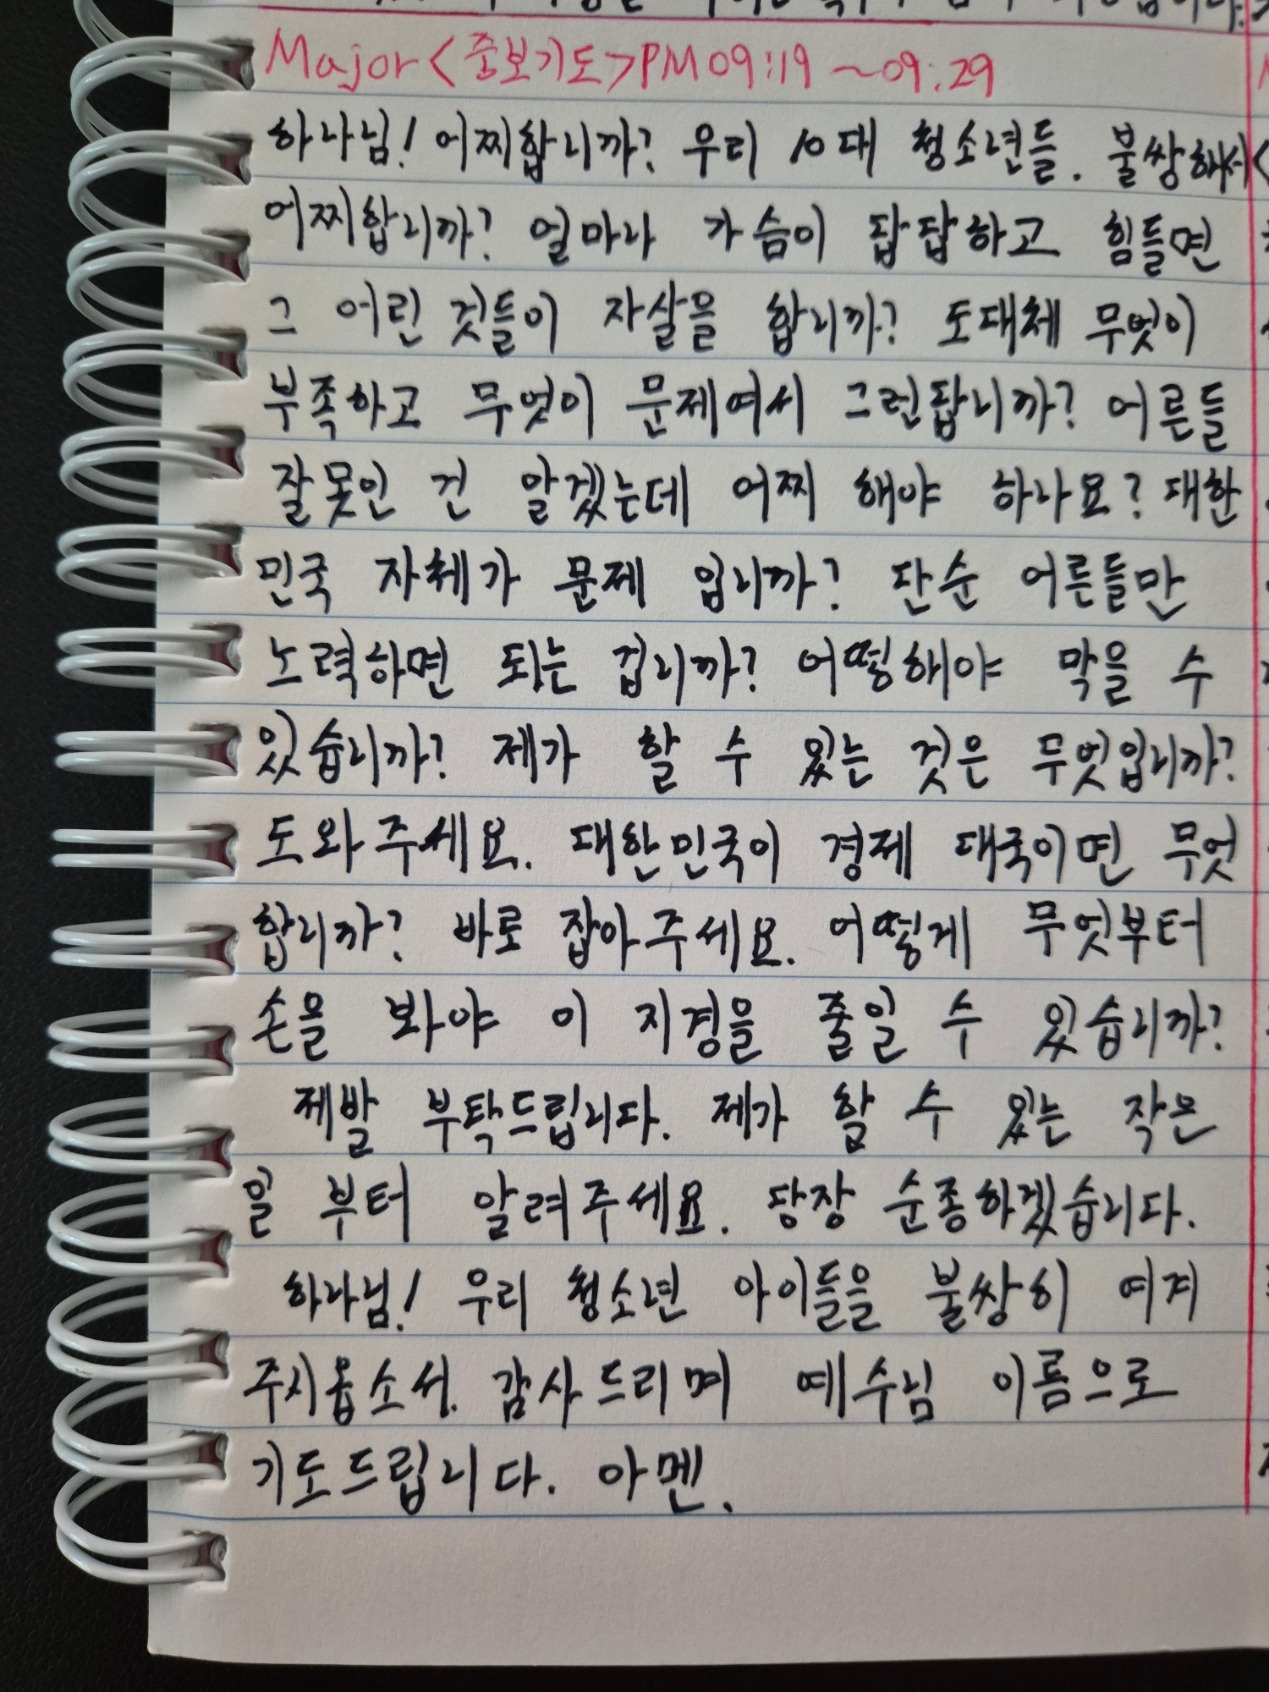 Major <중보기도> PM 09:19 ~ 09:29
하나님! 어찌합니까? 우리 10대 청소년들. 불쌍해서
어찌합니까? 얼마나 가슴이 답답하고 힘들면
그 어린 것들이 자살을 합니까? 도대체 무엇이
부족하고 무엇이 문제여서 그런답니까? 어른들
잘못인 건 알겠는데 어찌 해야 하나요? 대한
민국 자체가 문제 입니까? 단순 어른들만
노력하면 되는 겁니까? 어떻해야 막을 수
있습니까? 제가 할 수 있는 것은 무엇입니까?
도와주세요. 대한민국이 경제 대국이면 무엇
합니까? 바로 잡아주세요. 어떻게 무엇부터
손을 봐야 이 지경을 줄일 수 있습니까?
제발 부탁드립니다. 제가 할 수 있는 작은
일 부터 알려주세요. 당장 순종하겠습니다.
하나님! 우리 청소년 아이들을 불쌍히 여겨
주시옵소서. 감사드리며 예수님 이름으로
기도드립니다. 아멘.